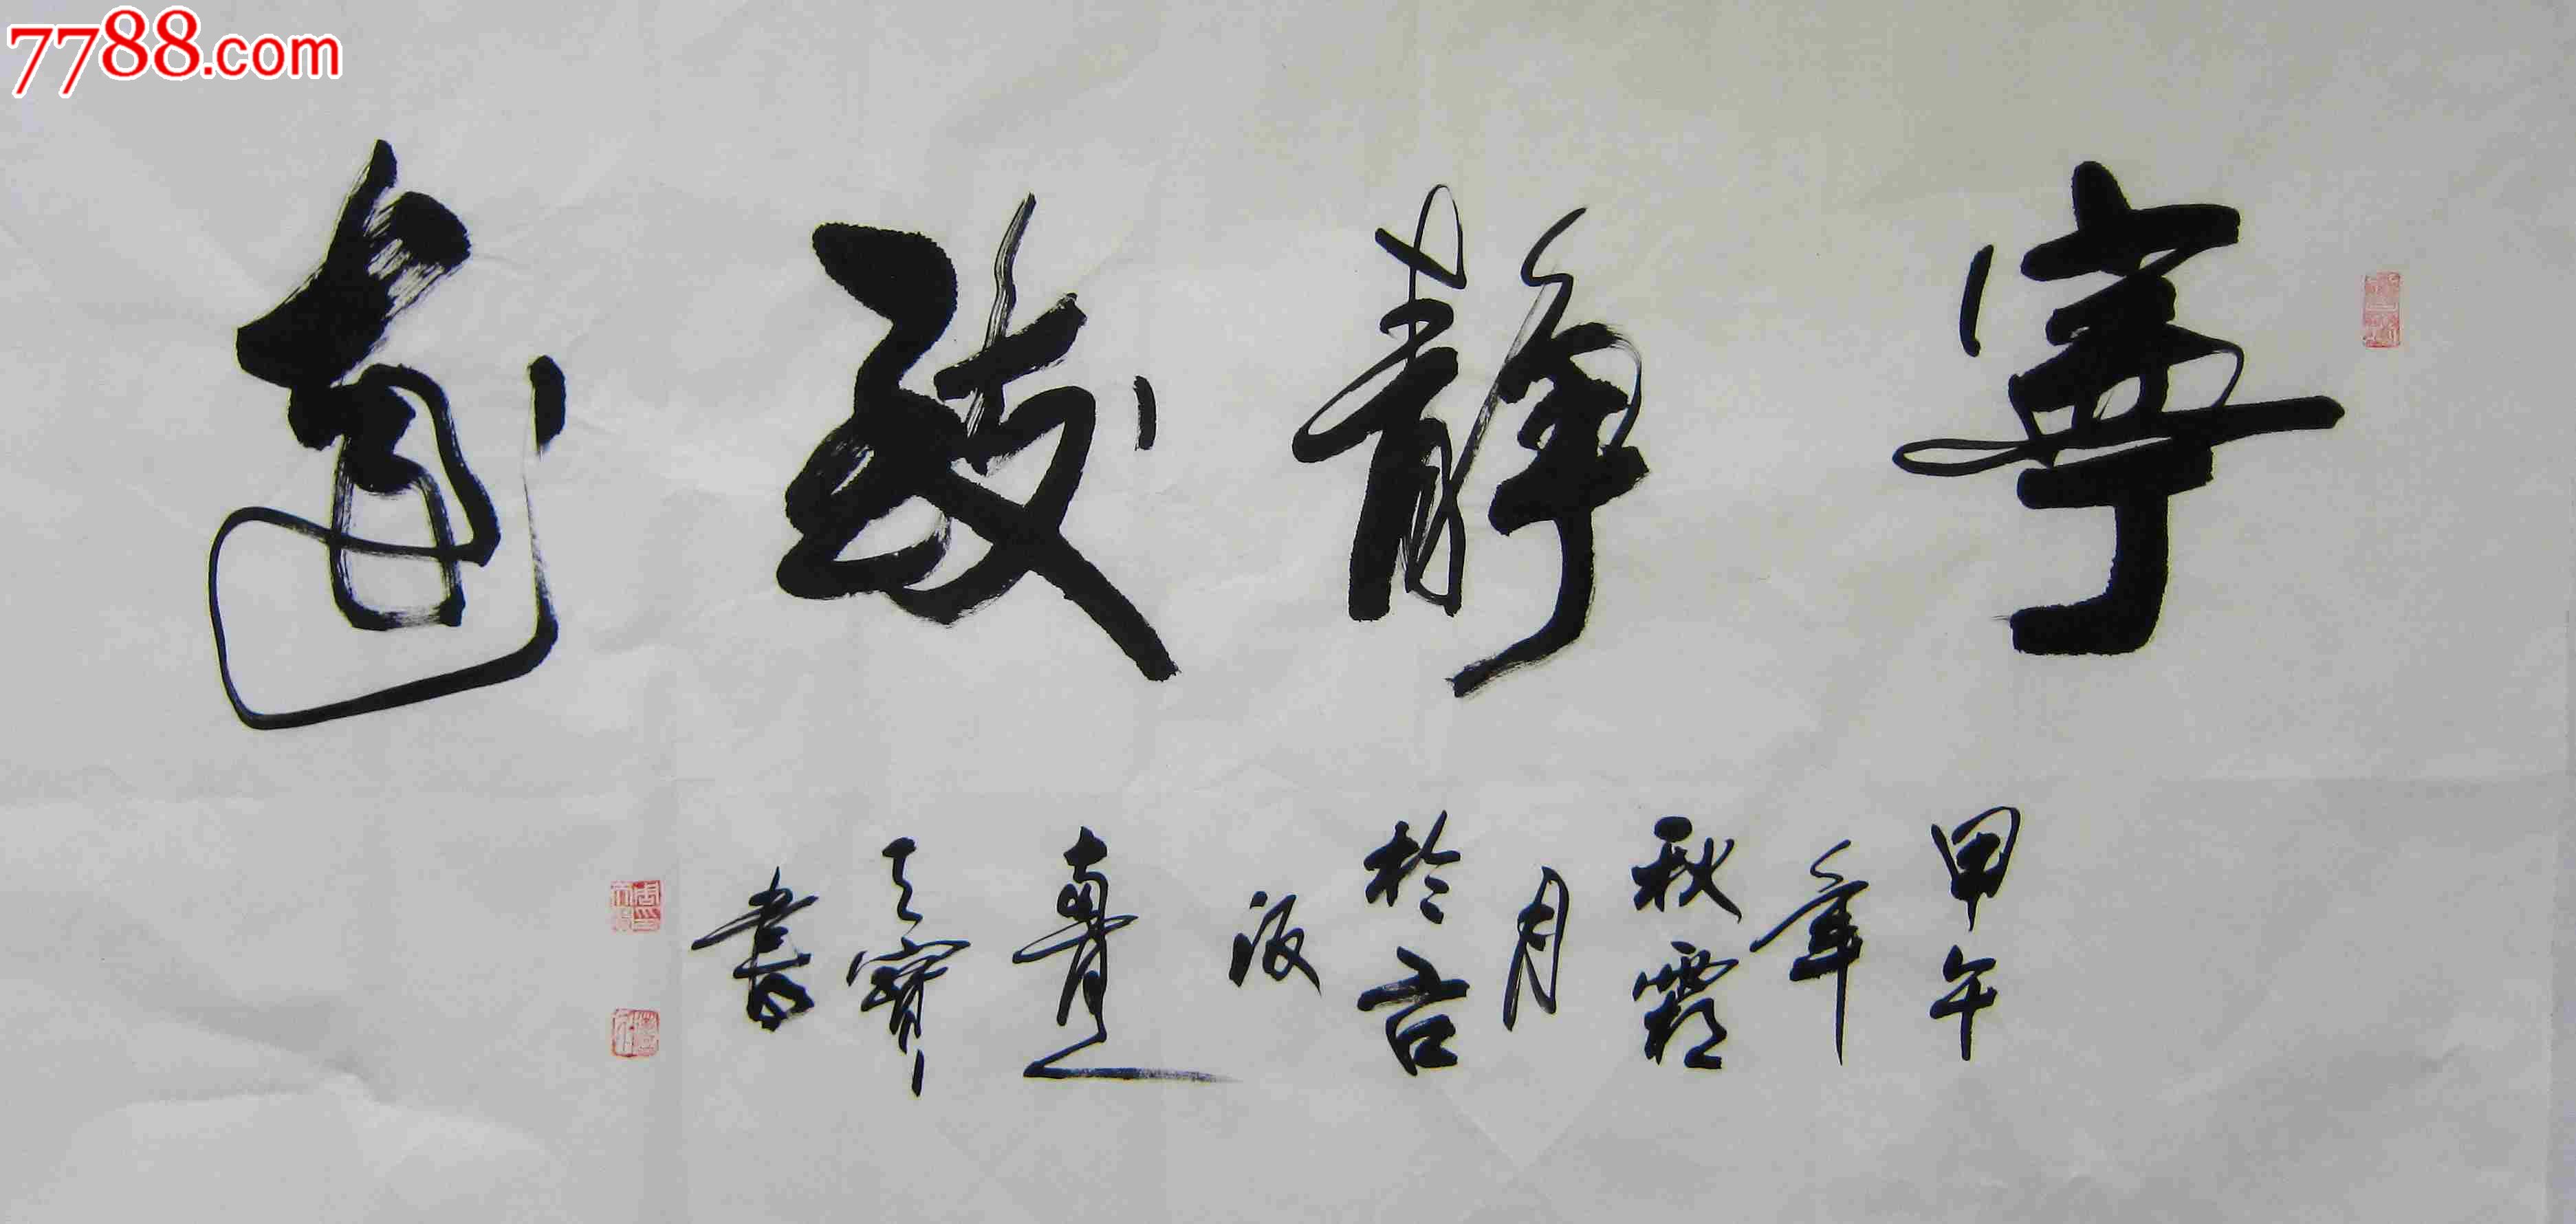 7788.com
寧靜致遠
甲午
年
秋霜
月
於古
汲
天寶
書